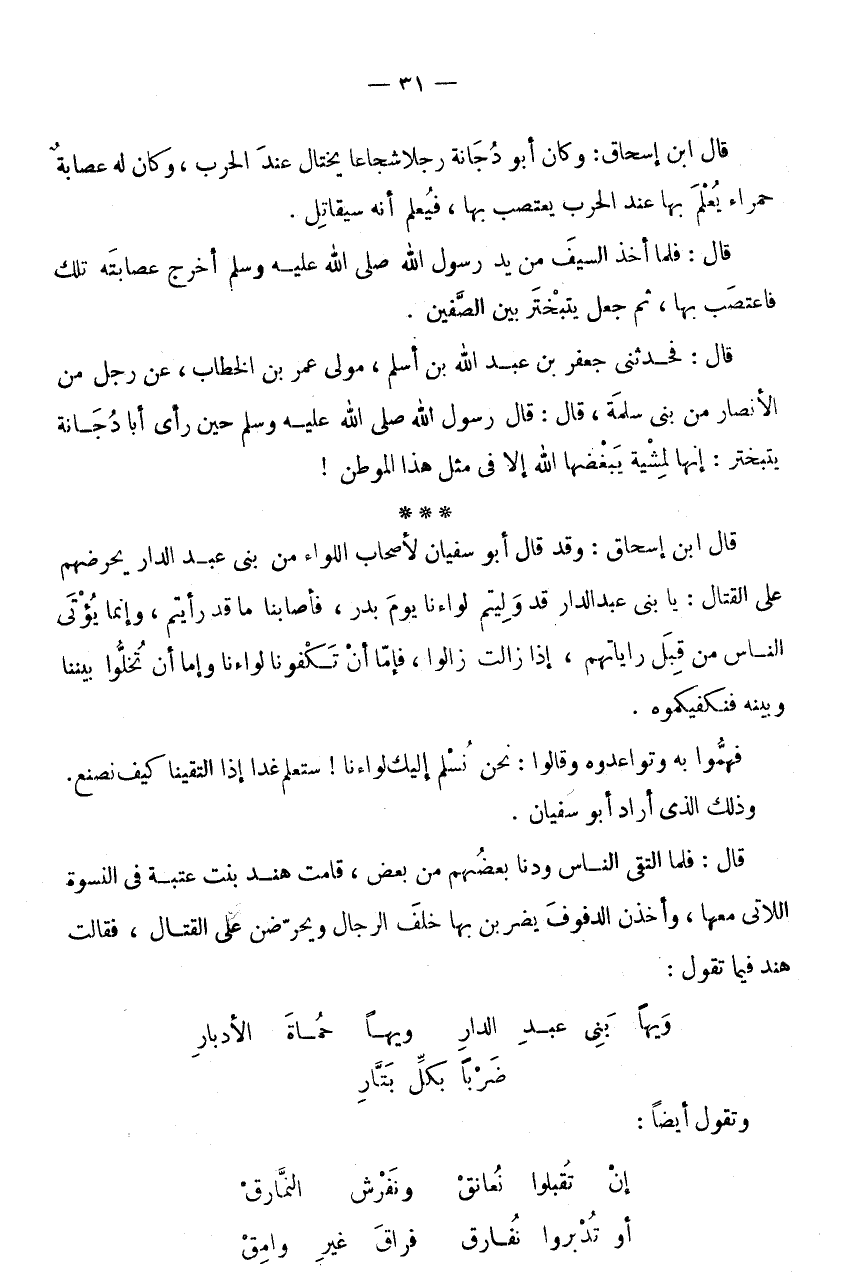 — ٣١ —
قال ابن إسحاق: وكان أبو دُجَانة رجلا شجاعا يختال عندَ الحرب ، وكان له عصابةٌ
حمراء يُعْلَمَ بها عند الحرب يعتصب بها ، فيُعلم أنه سيقاتِل .
قال : فلما أخذ السيفَ من يد رسول الله صلى الله عليه وسلم أخرج عصابتَه تلك
فاعتصَب بها ، ثم جعل يتبخْتَر بين الصَّفين .
قال : فحدثنى جعفر بن عبد الله بن أسلم ، مولى عمر بن الخطاب ، عن رجل من
الأنصار من بنى سلمَة ، قال : قال رسول الله صلى الله عليه وسلم حين رأى أبا دُجَانة
يتبختر : إنها لمِشْية يَبْغضها الله إلا فى مثل هذا الموطن !
* * *
قال ابن إسحاق : وقد قال أبو سفيان لأصحاب اللواء من بنى عبد الدار يحرضهم
على القتال : يا بنى عبدالدار قد وَلِيتم لواءنا يومَ بدر ، فأصابنا ما قد رأيتم ، وإنما يُؤْتَى
الناس من قِبَل راياتهم ، إذا زالت زالوا ، فإمّا أنْ تَكْفونا لواءنا وإما أن تُخلُّوا بيننا
وبينه فنكفيكموه .
فهمُّوا به وتواعدوه وقالوا : نحن نُسْلم إليك لواءنا ! ستعلم غدا إذا التقينا كيف نصنع.
وذلك الذى أراد أبو سفيان .
قال : فلما التقى الناس ودنا بعضُهم من بعض ، قامت هند بنت عتبة فى النسوة
اللاتى معها ، وأخذن الدفوفَ يضربن بها خلفَ الرجال ويحرّضن على القتال ، فقالت
هند فيما تقول :
وَيهاً بَنِى عبدِ الدارِ ويهاً حُمَاةَ الأدبارِ
ضَرْباً بكلِّ بَتَّارِ
وتقول أيضاً :
إنْ تُقبلوا نُعانقْ ونَفْرش النمَّارقْ
أو تُدْبروا نُفَارق فراقَ غيرِ وامِقْ